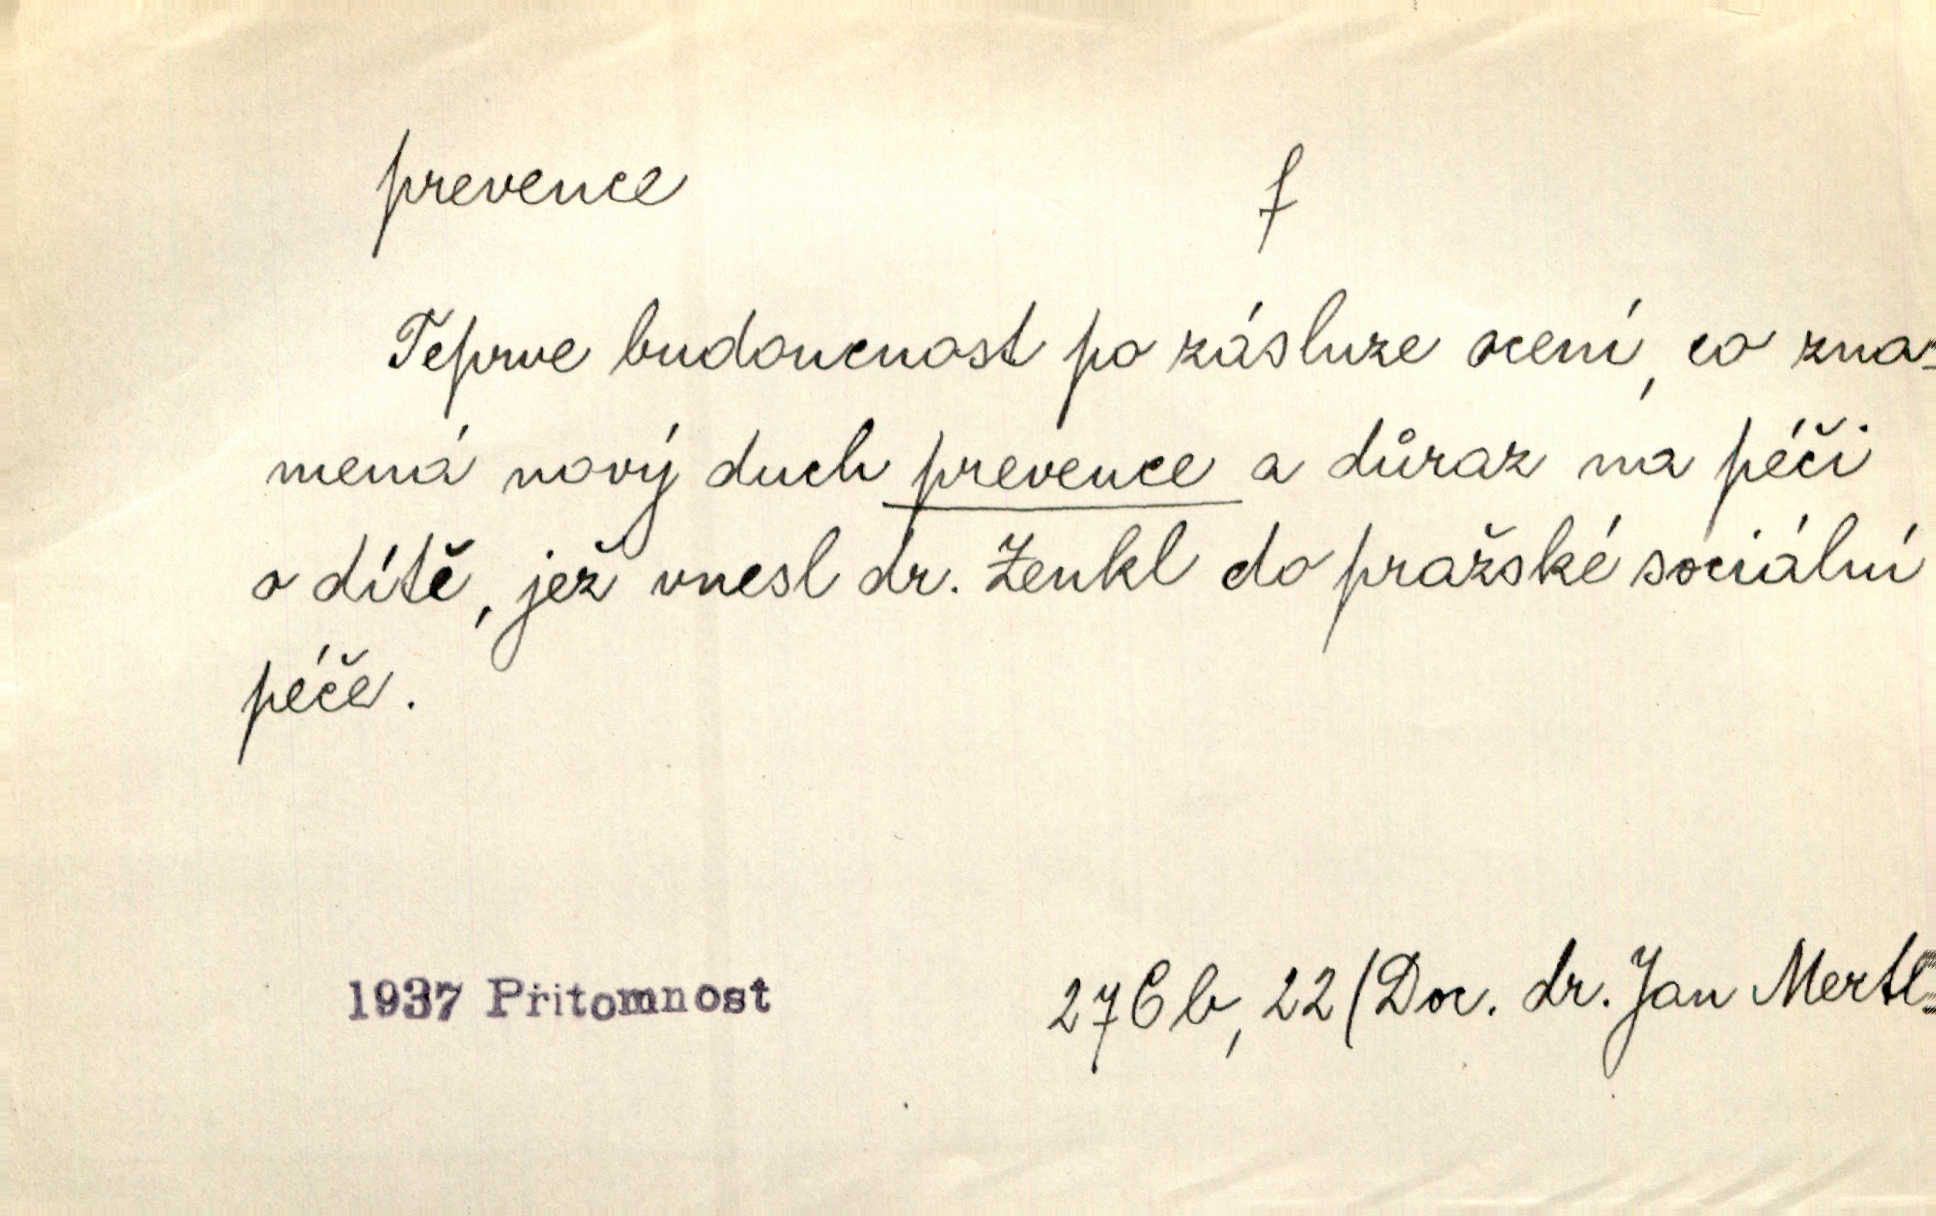 prevence f
Teprve budoucnost po zásluze ocení, co zna-
mená nový duch prevence a důraz na péči
o dítě, jež vnesl dr. Zenkl do pražské sociální
péče.
1937 Přítomnost 276b, 22 (Doc. dr. Jan Mertl